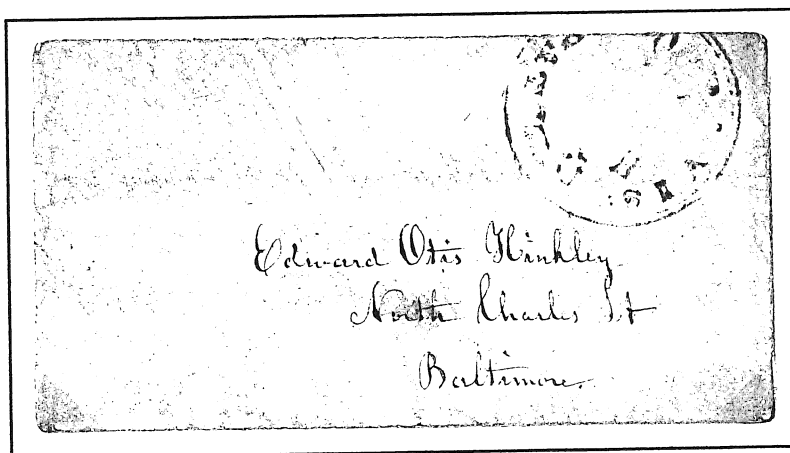 Edward Otis Hinkley
North Charles St
Baltimore.